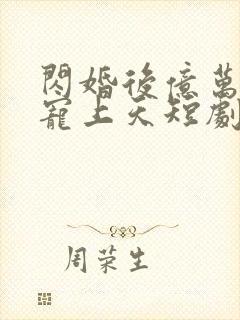 閃婚後億萬
寵上天短劇
周荣生